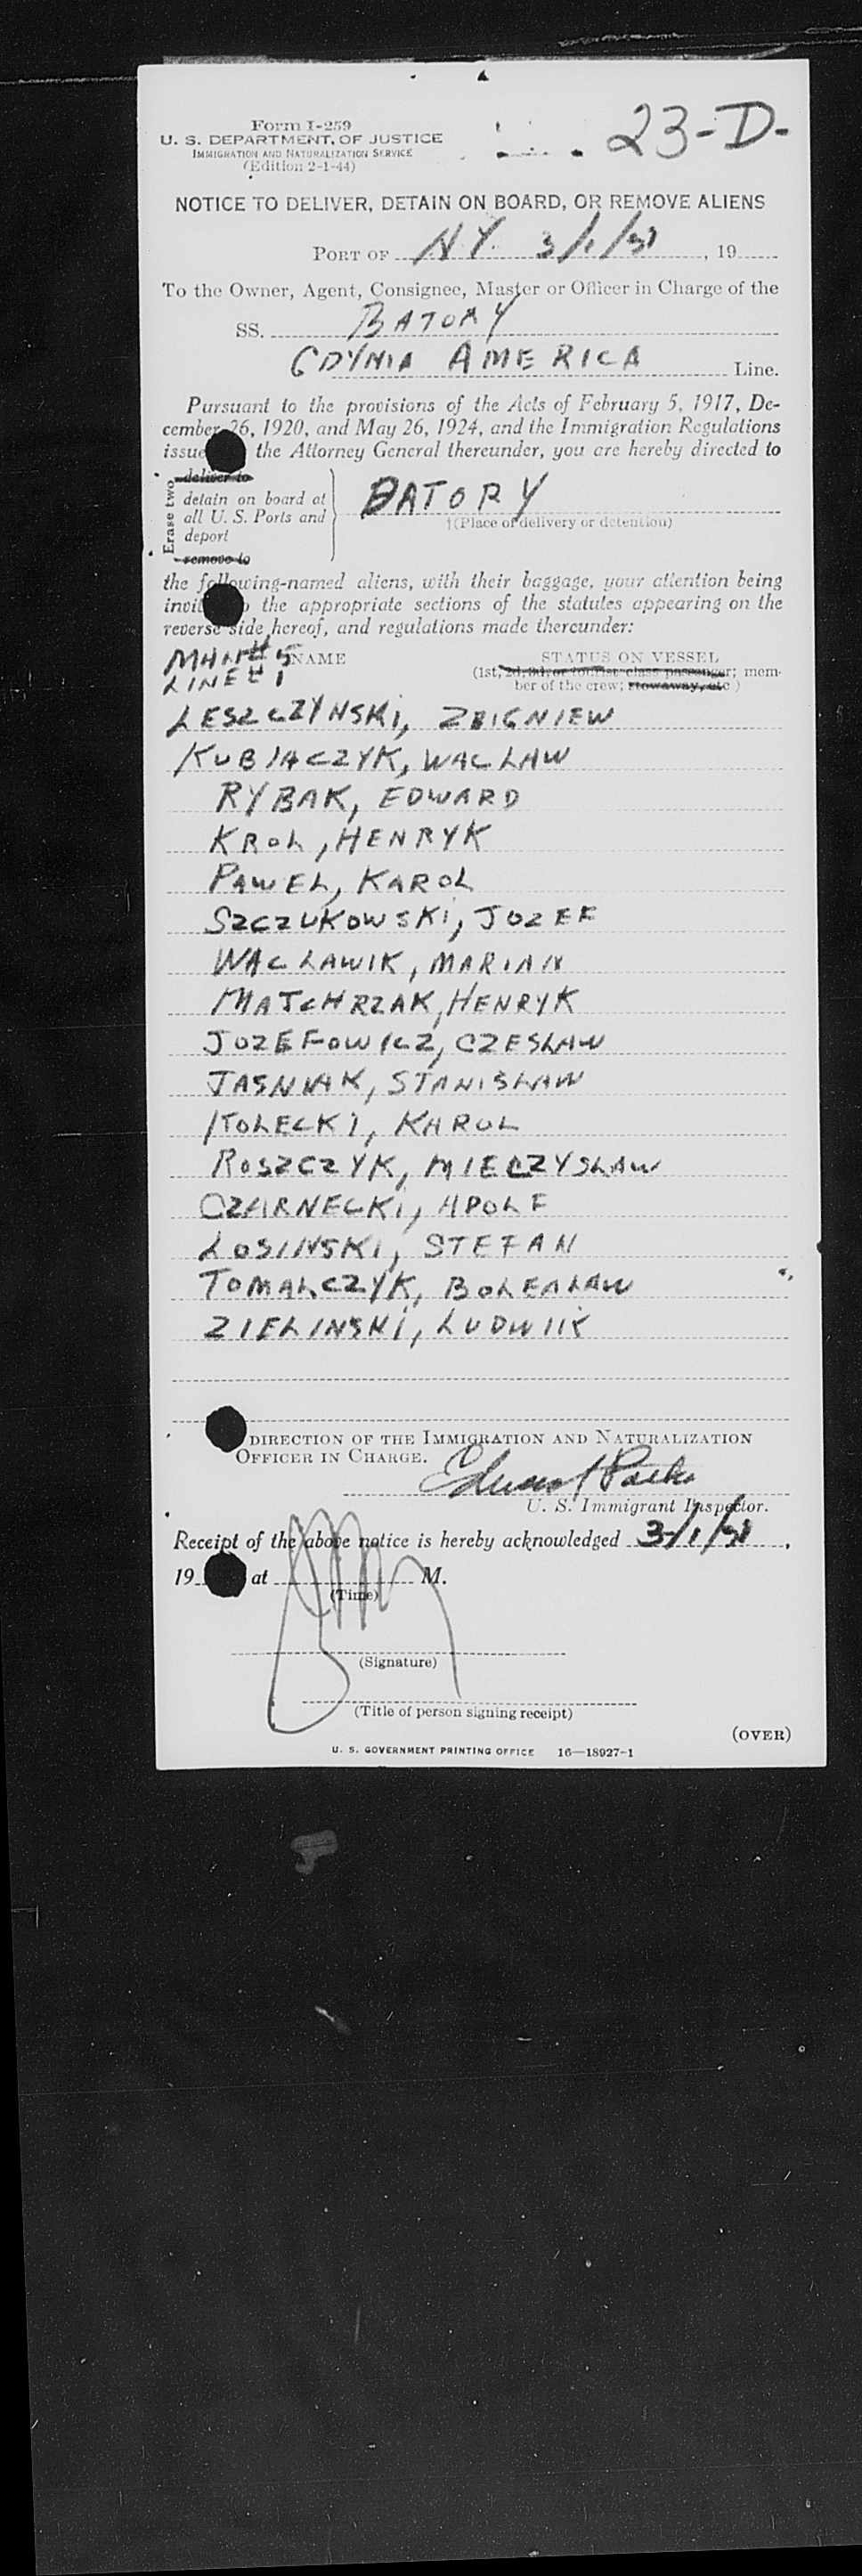 Form I-259
U. S. DEPARTMENT OF JUSTICE
IMMIGRATION AND NATURALIZATION SERVICE
(Edition 2-1-44)
23-D-
NOTICE TO DELIVER, DETAIN ON BOARD, OR REMOVE ALIENS
PORT OF NY. 3/1/51, 19
To the Owner, Agent, Consignee, Master or Officer in Charge of the
SS. BATORY
GDYNIA AMERICA Line.
Pursuant to the provisions of the Acts of February 5, 1917, De-
cember 26, 1920, and May 26, 1924, and the Immigration Regulations
issue the Attorney General thereunder, you are hereby directed to
Erase two
deliver to
detain on board at
all U. S. Ports and
deport
remove to
BATORY
†(Place of delivery or detention)
the following-named aliens, with their baggage, your attention being
invit the appropriate sections of the statutes appearing on the
reverse side hereof, and regulations made thereunder:
#5 NAME
LINE #1
STATUS ON VESSEL
(1st, 2d, 3d, or tourist class passenger; mem-
ber of the crew; stowaway, etc.)
LESZCZYNSKI, ZBIGNIEW
KUBIACZYK, WACLAW
RYBAK, EDWARD
KROL, HENRYK
PAWEL, KAROL
SZCZUKOWSKI, JOZEF
WACLAWIK, MARIAN
MATCHRZAK, HENRYK
JOZEFOWICZ, CZESLAW
JASNIAK, STANISLAW
KOLECKI, KAROL
ROSZCZYK, MIECZYSLAW
CZARNECKI,
LOSINSKI, STEFAN
TOMALCZYK,
ZIELINSKI, LUDWIIK
DIRECTION OF THE IMMIGRATION AND NATURALIZATION
OFFICER IN CHARGE.
U. S. Immigrant Inspector.
Receipt of the above notice is hereby acknowledged 3/1/51,
19 at M.
(Time)
(Signature)
(Title of person signing receipt)
(OVER)
U. S. GOVERNMENT PRINTING OFFICE 16—18927-1